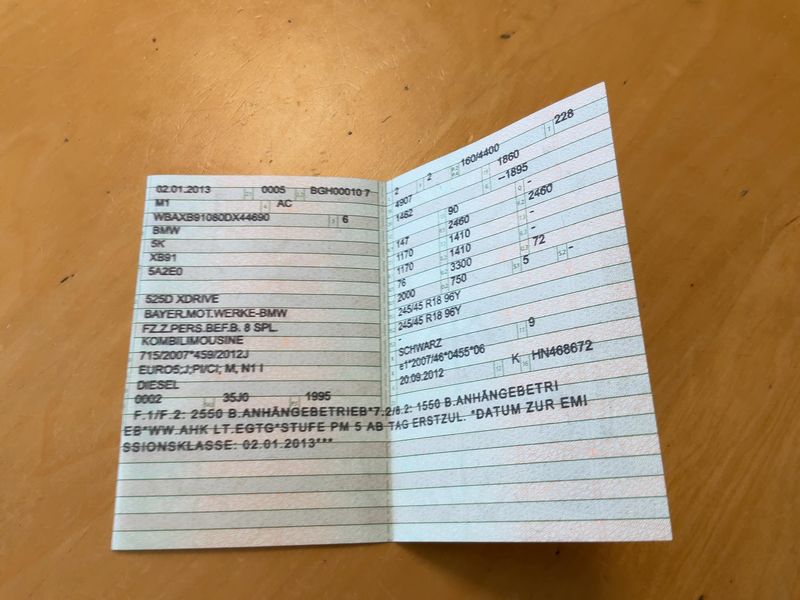 02.01.2013 0005 BGH00010 7
M1 AC
WBAXB91080DX44690 6
BMW
5K
XB91
5A2E0
525D XDRIVE
BAYER.MOT.WERKE-BMW
FZ.Z.PERS.BEF.B. 8 SPL.
KOMBILIMOUSINE
715/2007*459/2012J
EURO5;J;PI/CI; M, N1 I
DIESEL
0002 35J0 1995
2 2 160/4400 228
4907 1860
1462 --1895
90 -
147 2460 2460
1170 1410 -
1170 1410 -
76 3300 72
2000 750 5 -
245/45 R18 96Y
245/45 R18 96Y
-
SCHWARZ 9
e1*2007/46*0455*06
20.09.2012 K HN468672
F.1/F.2: 2550 B.ANHÄNGEBETRIEB*7.2/8.2: 1550 B.ANHÄNGEBETRI
EB*WW.AHK LT.EGTG*STUFE PM 5 AB TAG ERSTZUL. *DATUM ZUR EMI
SSIONSKLASSE: 02.01.2013***